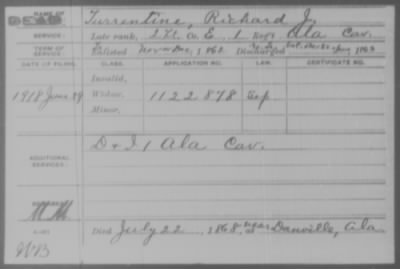 NAME OF Turrentine, Richard J.
SERVICE: Late rank, 2 Lt. Co. E, 1 Reg't Ala Cav.
TERM OF SERVICE: Enlisted Nov or Dec, 1862 Discharged 1863
DATE OF FILING. CLASS. APPLICATION NO. LAW. CERTIFICATE NO.
Invalid,
1918 June 29 Widow, 1122878
Minor,
D & I 1 Ala Cav.
ADDITIONAL SERVICES:
Died July 22, 1868, near at Danville, Ala